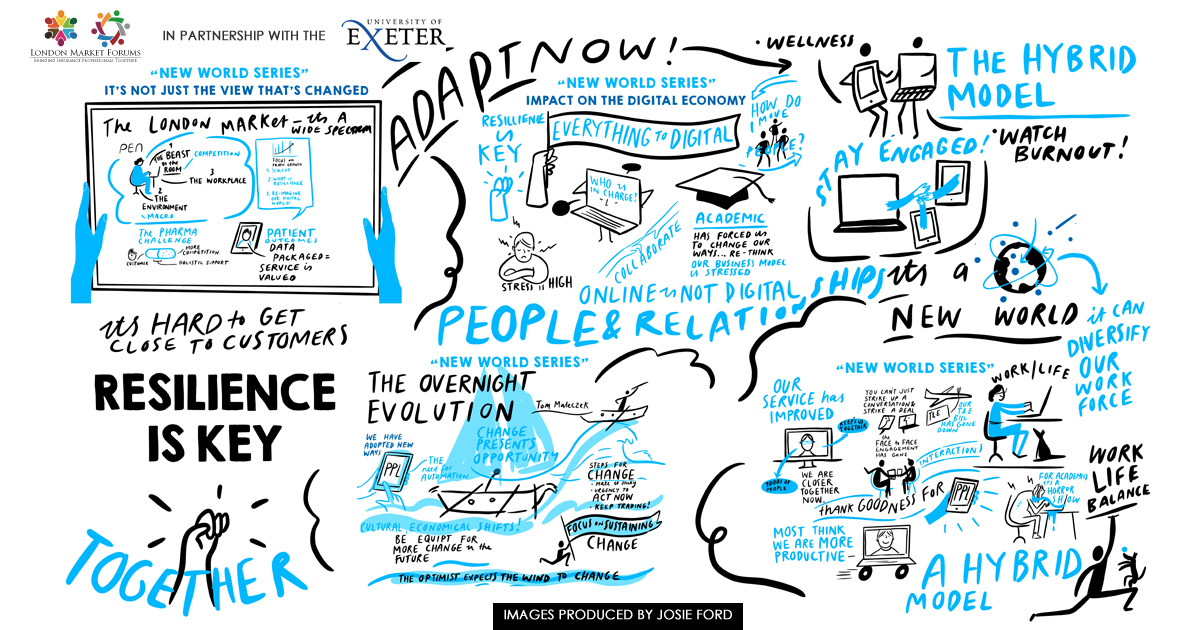 LONDON MARKET FORUMS
BRINGING INSURANCE PROFESSIONALS TOGETHER
IN PARTNERSHIP WITH THE
UNIVERSITY OF
EXETER
"NEW WORLD SERIES"
IT'S NOT JUST THE VIEW THAT'S CHANGED
The LONDON MARKET - its A
WIDE SPECTRUM
PEN
1
THE BEAST
in the
ROOM
COMPETITION
3
THE WORKPLACE
2
THE
ENVIRONMENT
MACRO
FOCUS on
GROWTH
1. SCALEUP
2. WHAT is
RESILIENCE
3. RE-IMAGINE
OUR DIGITAL
WORLD
The PHARMA
CHALLENGE
MORE
COMPETITION
CUSTOMER
HOLISTIC SUPPORT
PATIENT
OUTCOMES
DATA
PACKAGED =
SERVICE is
VALUED
its HARD to GET
CLOSE TO CUSTOMERS
RESILIENCE
IS KEY
TOGETHER
ADAPT NOW!
"NEW WORLD SERIES"
IMPACT ON THE DIGITAL ECONOMY
RESILIENCE
is
KEY
EVERYTHING to DIGITAL
HOW DO
I MOVE
PEOPLE?
WHO is
IN CHARGE?
STRESS is HIGH
COLLABORATE
ACADEMIC
HAS FORCED us
TO CHANGE OUR
WAYS... RE-THINK
OUR BUSINESS MODEL
is STRESSED
ONLINE is NOT DIGITAL
PEOPLE & RELATIONSHIPS
"NEW WORLD SERIES"
THE OVERNIGHT
EVOLUTION
Tom Maleczek
WE HAVE
ADOPTED NEW
WAYS
PPL
THE
need for
AUTOMATION
CHANGE
PRESENTS
OPPORTUNITY
STEPS FOR
CHANGE
• URGENCY to
ACT NOW
• KEEP TRADING!
CULTURAL ECONOMICAL SHIFTS!
BE EQUIPT FOR
MORE CHANGE in the
FUTURE
FOCUS on SUSTAINING
CHANGE
THE OPTIMIST EXPECTS THE WIND TO CHANGE
• WELLNESS
THE HYBRID
MODEL
STAY ENGAGED!
• WATCH
BURNOUT!
its A
NEW WORLD
it CAN
DIVERSIFY
OUR
WORK
FORCE
"NEW WORLD SERIES"
OUR
SERVICE has
IMPROVED
KEEPS US
TOGETHER
1000s OF
PEOPLE
WE ARE
CLOSER
TOGETHER
NOW
YOU CAN'T JUST
STRIKE UP A
CONVERSATION &
STRIKE A DEAL
the
FACE to FACE
ENGAGEMENT
HAS GONE
T&E
OUR
T&E
BILL
HAS GONE
DOWN
WORK/LIFE
INTERACTIONS
thANK GOODNESS FOR
PPL
FOR ACADEMICS
it's A
HORROR
SHOW
MOST THINK
WE ARE MORE
PRODUCTIVE
WORK
LIFE
BALANCE
A HYBRID
MODEL
IMAGES PRODUCED BY JOSIE FORD